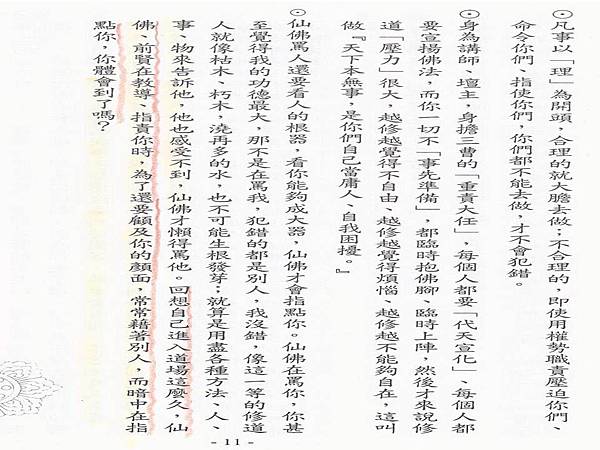 ⊙凡事以「理」為開頭，合理的就大膽去做；不合理的，即使用權勢職責壓迫你們、
命令你們、指使你們，你們都不能去做，才不會犯錯。
⊙身為講師、壇主，身擔三曹的「重責大任」，每個人都要「代天宣化」、每個人都
要宣揚佛法，而你一切不「事先準備」，都臨時抱佛腳、臨時上陣，然後才來說修
道「壓力」很大，越修越覺得不自由、越修越覺得煩惱、越修越不能夠自在，這叫
做『天下本無事，是你們自己當庸人、自我困擾。』
⊙仙佛罵人還要看人的根器，看你能夠成大器，仙佛才會指點你。仙佛在罵你，你甚
至覺得我的功德最大，那不是在罵我，犯錯的都是別人，我沒錯，像這一等的修道
人就像枯木、朽木，澆再多的水，也不可能生根發芽；就算是用盡各種方法、人、
事、物來告訴他，他也感受不到，仙佛才懶得罵他。回想自己進入道場這麼久，仙
佛、前賢在教導、指責你時，為了還要顧及你的顏面，常常藉著別人，而暗中在指
點你，你體會到了嗎？
- 11 -